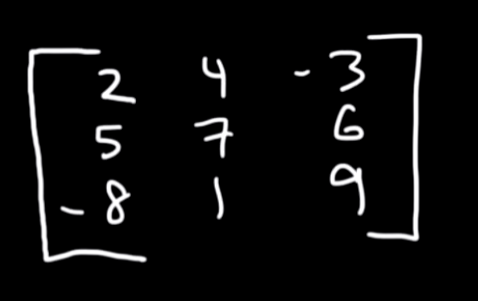 2 4 -3
5 7 6
-8 1 9